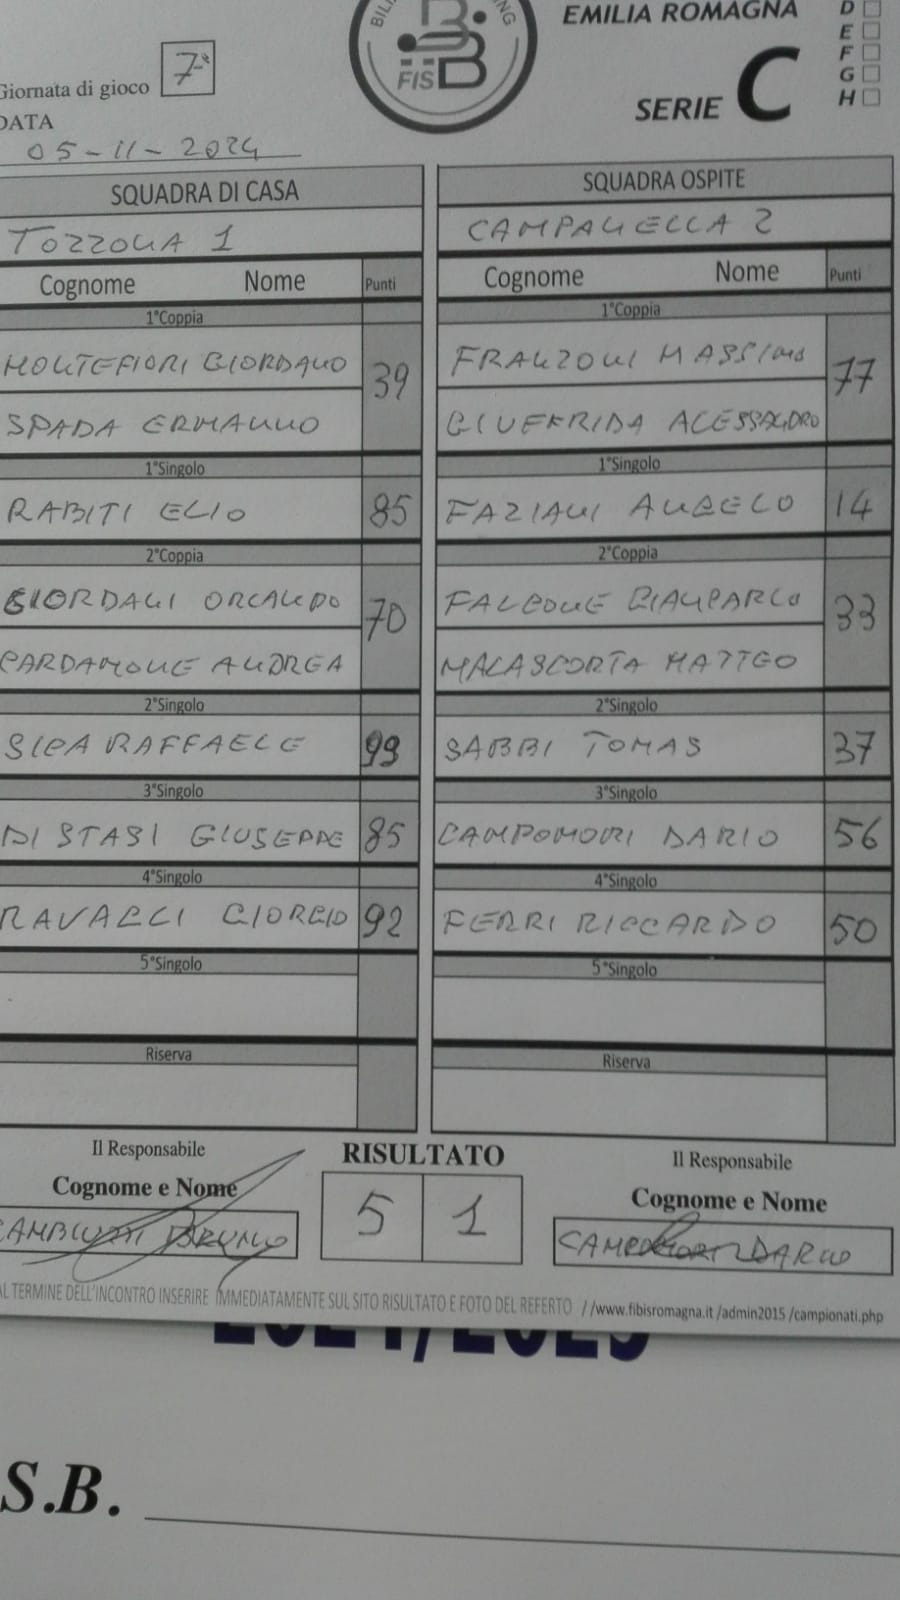 EMILIA ROMAGNA
D
E
F
G
H
FISBB
Giornata di gioco 7ª
SERIE C
DATA
05-11-2024
SQUADRA DI CASA
SQUADRA OSPITE
TOZZONA 1
CAMPANELLA 2
Cognome Nome Punti
Cognome Nome Punti
1°Coppia
1°Coppia
MONTEFIORI GIORDANO 39
FRANZONI MASSIMO 77
SPADA ERMANNO
GIUFFRIDA ALESSANDRO
1°Singolo
1°Singolo
RABITI ELIO 85
FAZIANI ANGELO 14
2°Coppia
2°Coppia
GIORDANI ORLANDO 70
FALCONE GIANCARLO 33
CARDAMONE ANDREA
MALASCORTA MATTEO
2°Singolo
2°Singolo
SICA RAFFAELE 99
SABBI TOMAS 37
3°Singolo
3°Singolo
DI STASI GIUSEPPE 85
CAMPOMORI DARIO 56
4°Singolo
4°Singolo
RAVAGLI GIORGIO 92
FERRI RICCARDO 50
5°Singolo
5°Singolo
Riserva
Riserva
Il Responsabile
RISULTATO
Il Responsabile
Cognome e Nome
Cognome e Nome
5 1
BRUNO
CAMPOMORI DARIO
AL TERMINE DELL'INCONTRO INSERIRE IMMEDIATAMENTE SUL SITO RISULTATO E FOTO DEL REFERTO //www.fibisromagna.it /admin2015 /campionati.php
2024/2025
S.B.